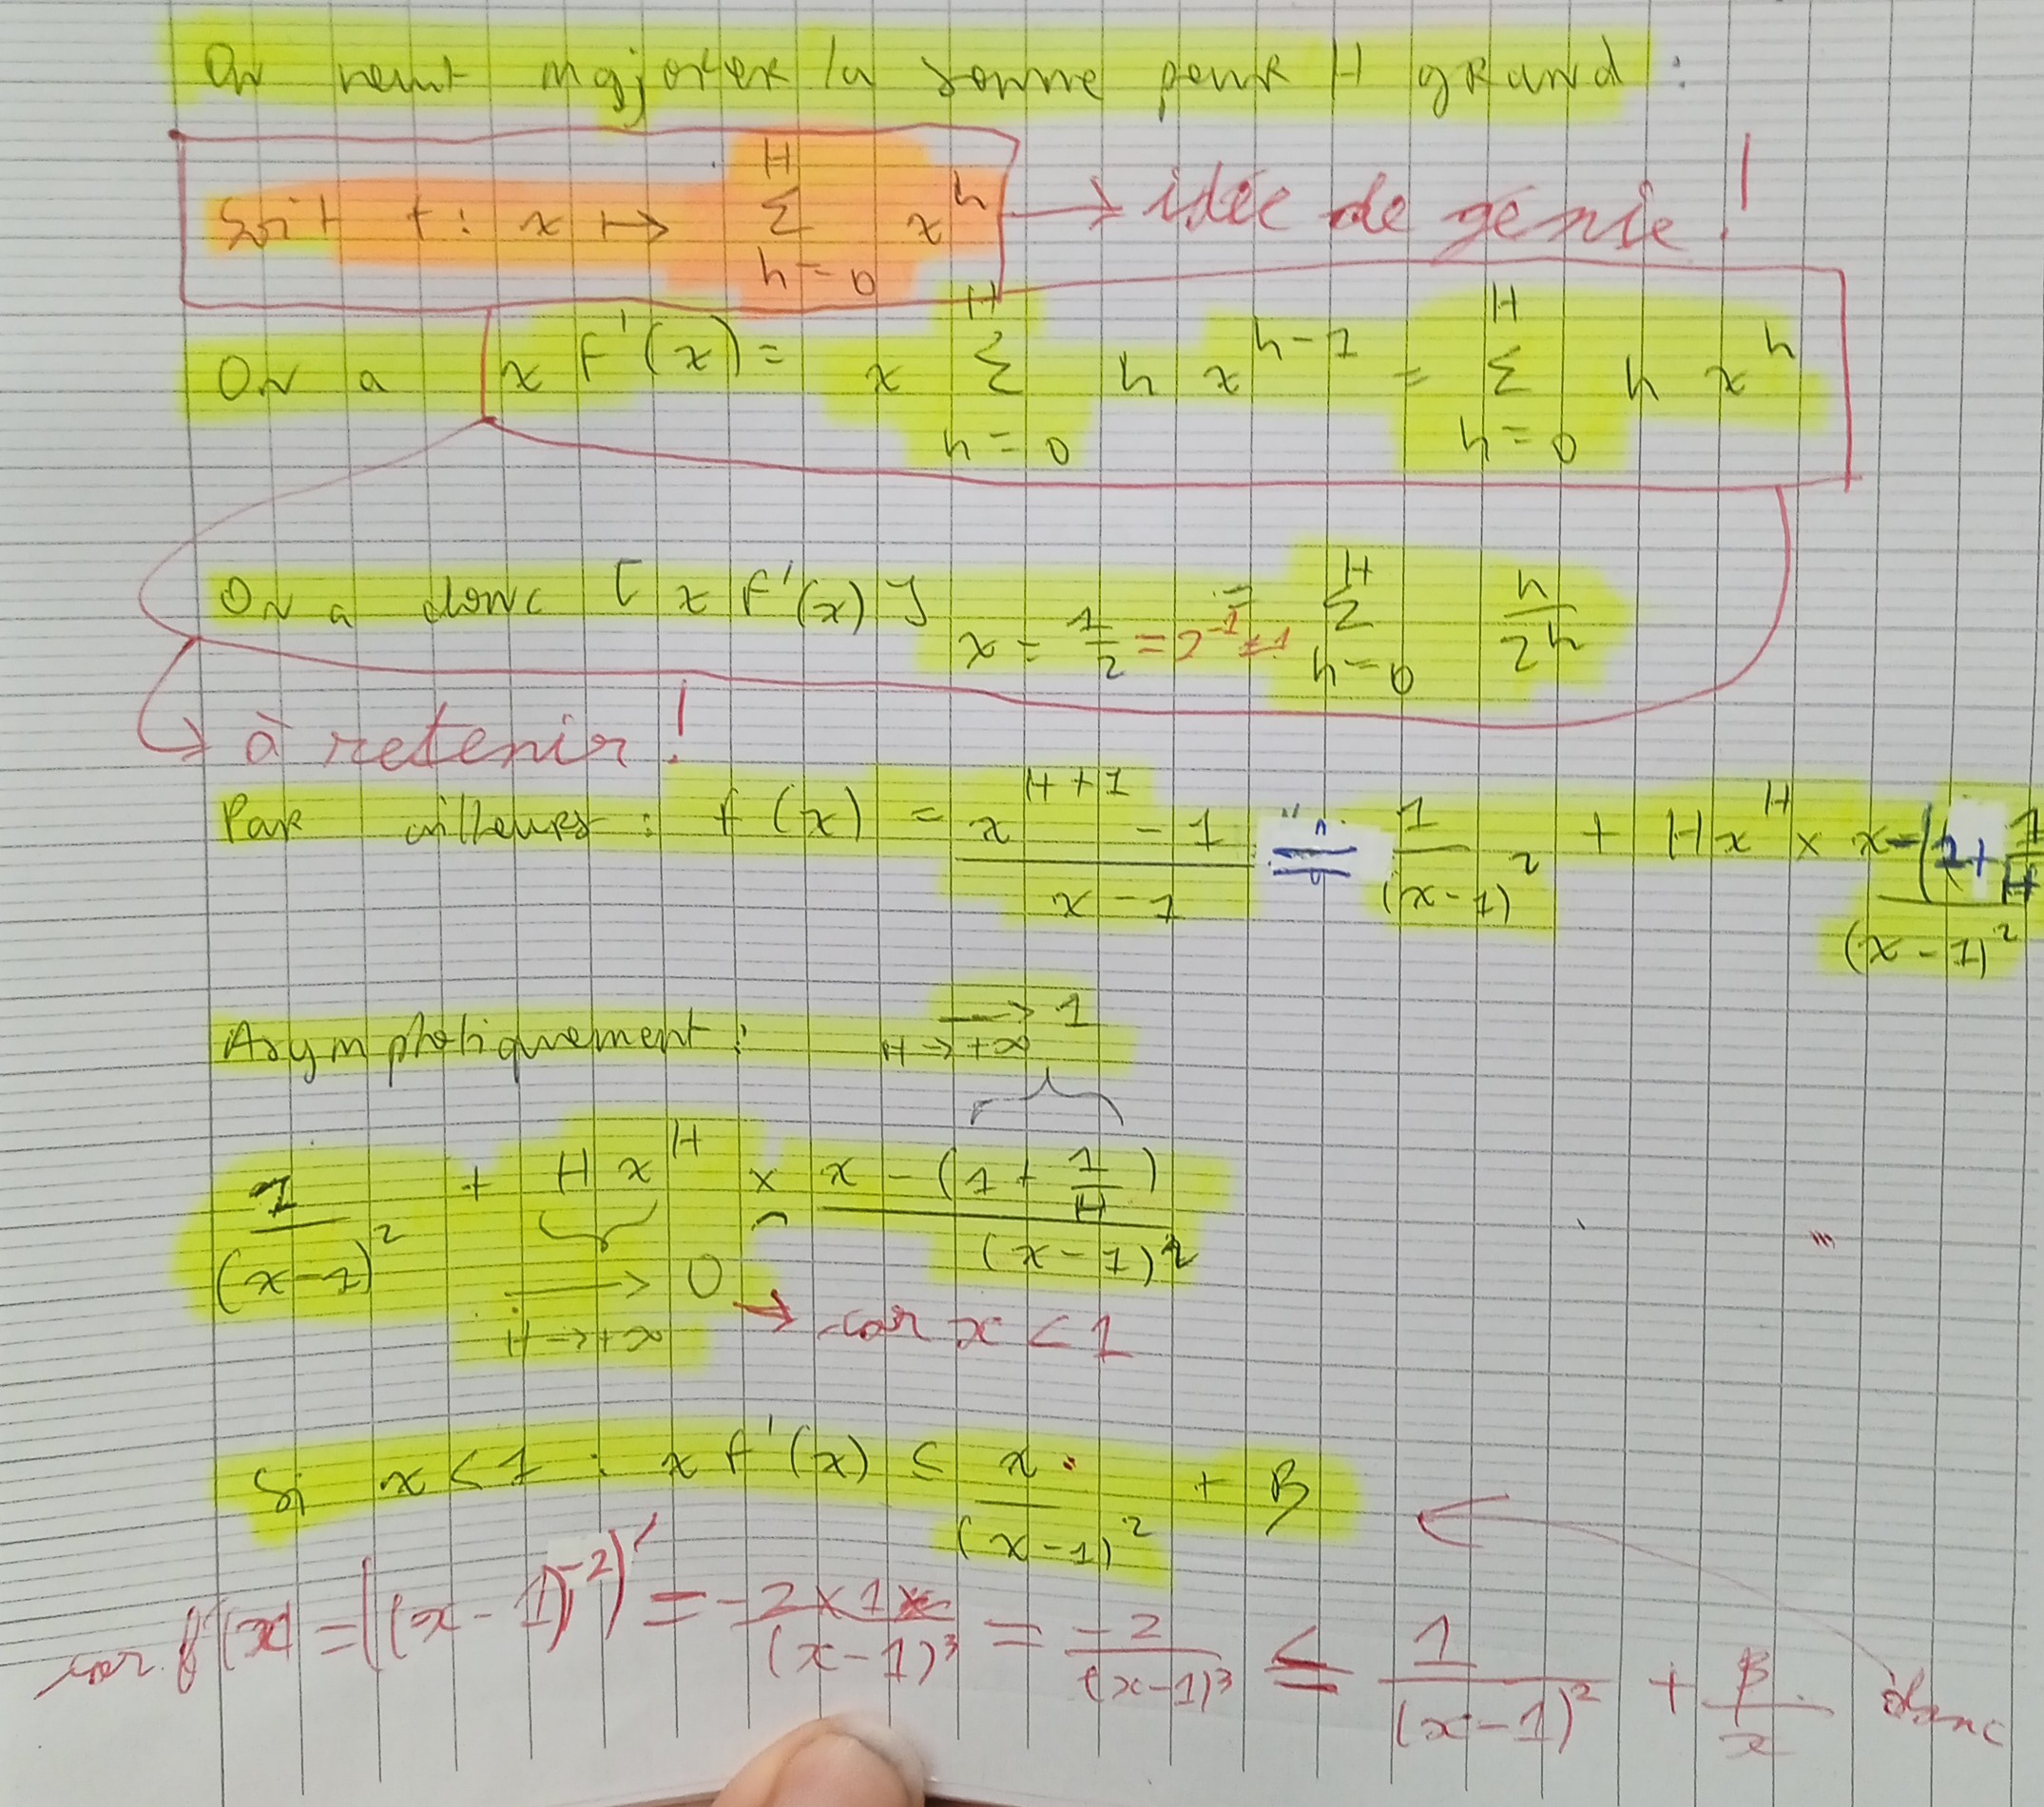 On veut majorer la somme pour H grand :
Soit f : x ↦ Σ_{h=0}^{H} x^h → idée de génie !
On a x f'(x) = x Σ_{h=0}^{H} h x^{h-1} = Σ_{h=0}^{H} h x^h
On a donc [x f'(x)]_{x = 1/2 = 2^{-1} ≠ 1} = Σ_{h=0}^{H} h/2^h
→ à retenir !
Par ailleurs : f(x) = (x^{H+1} - 1)/(x - 1) "=" 1/(x-1)^2 + H x^H × (x - (1 + 1/H))/(x-1)^2
Asymptotiquement : ⟶_{H→+∞} 1
1/(x-1)^2 + H x^H × (x - (1 + 1/H))/(x-1)^2
⟶_{H→+∞} 0 → car x < 1
Si x < 1 : x f'(x) ≤ x/(x-1)^2 + B
car f'(x) = ((x-1)^{-2})' = (-2×1)/(x-1)^3 = -2/(x-1)^3 ≤ 1/(x-1)^2 + B/x donc